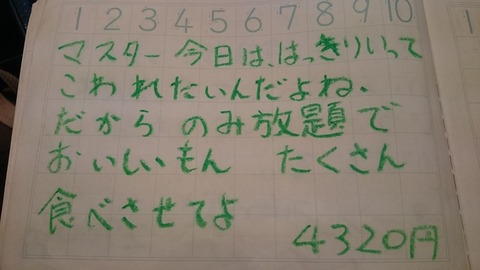 1 2 3 4 5 6 7 8 9 10
マスター 今日は、はっきりいって
こわれたいんだよね、
だから のみ放題で
おいしいもん たくさん
食べさせてよ
4320円
1